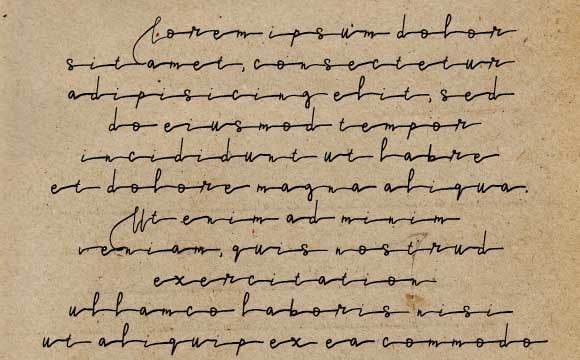 Lorem ipsum dolor
sit amet, consectetur
adipisicing elit, sed
do eiusmod tempor
incididunt ut labre
et dolore magna aliqua.
Ut enim ad minim
veniam, quis nostrud
exercitation
ullamco laboris nisi
ut aliquip ex ea commodo